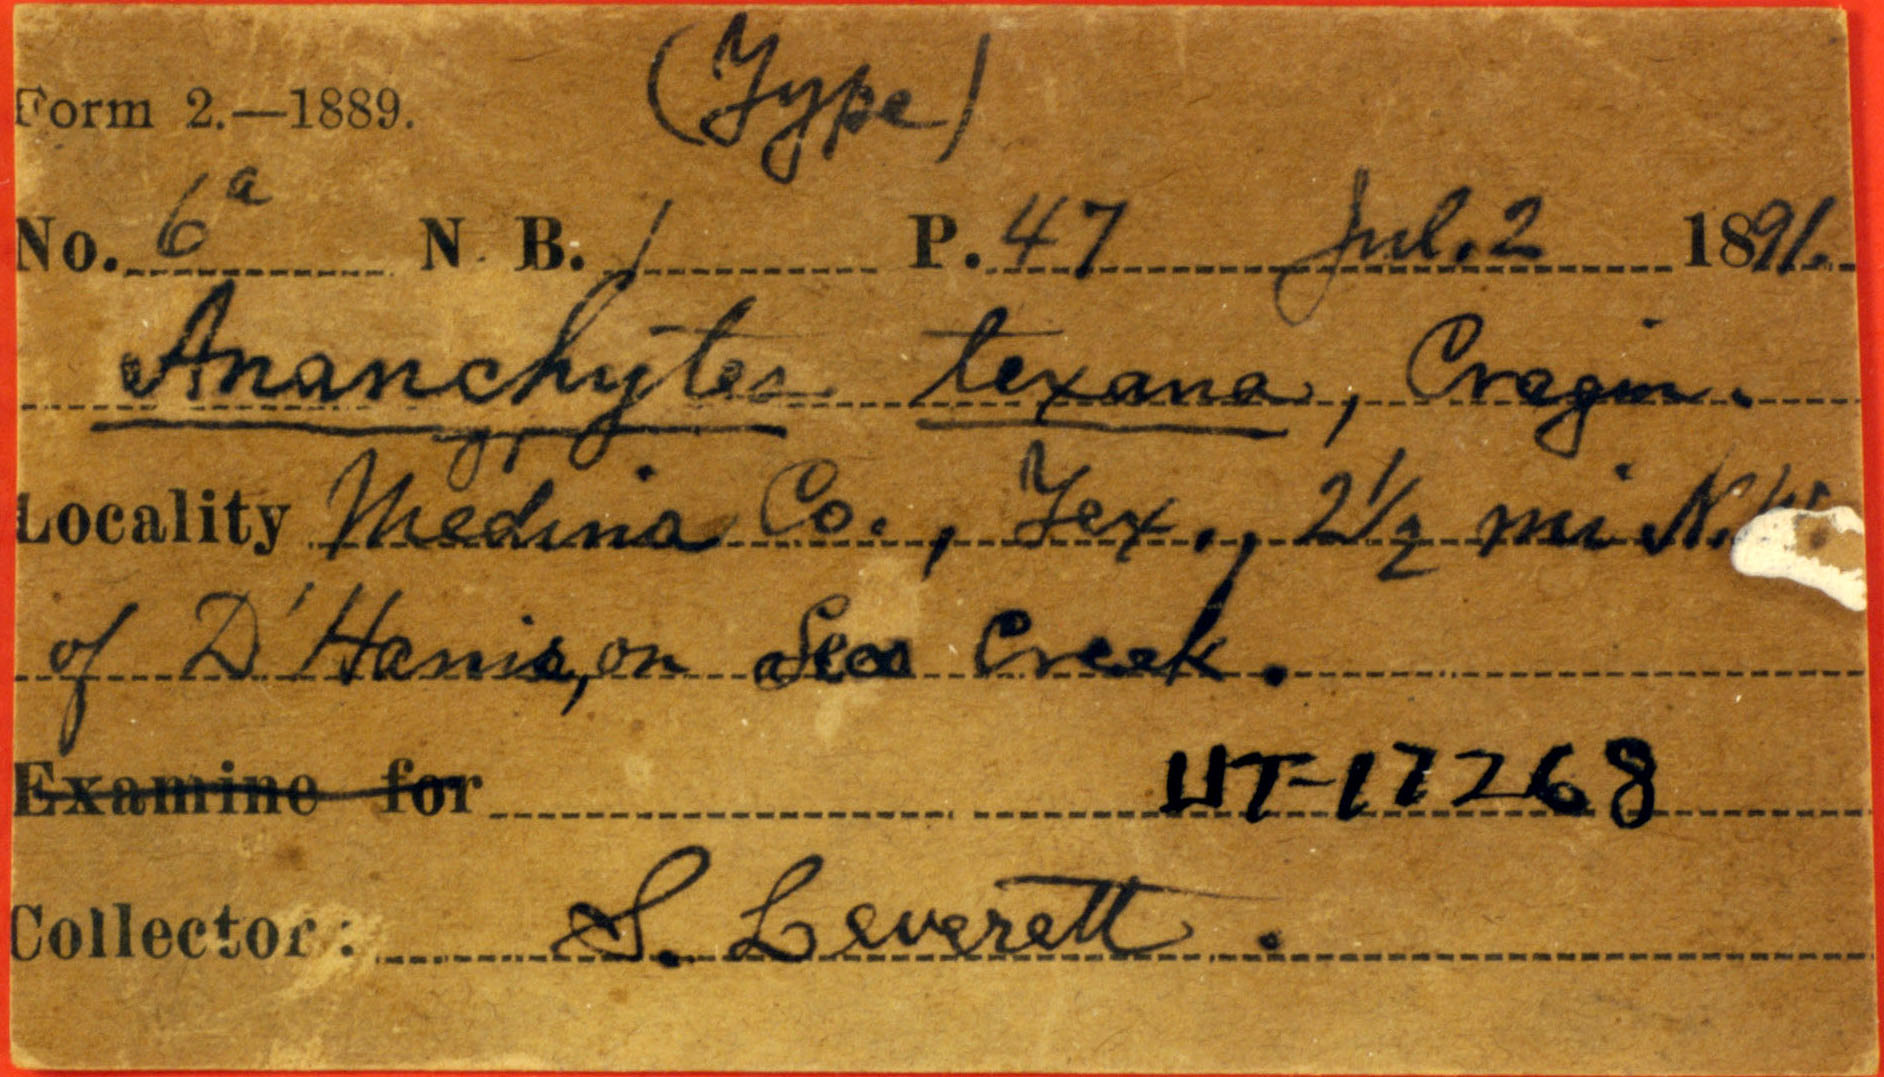 (Type)
Form 2.—1889.
No. 6a N. B. 1 P. 47 Jul. 2 1891.
Ananchytes texana, Cragin.
Locality Medina Co., Tex., 2½ mi N.W.
of D'Hanis, on Seco Creek.
Examine for UT-17268
Collector: S. Leverett.